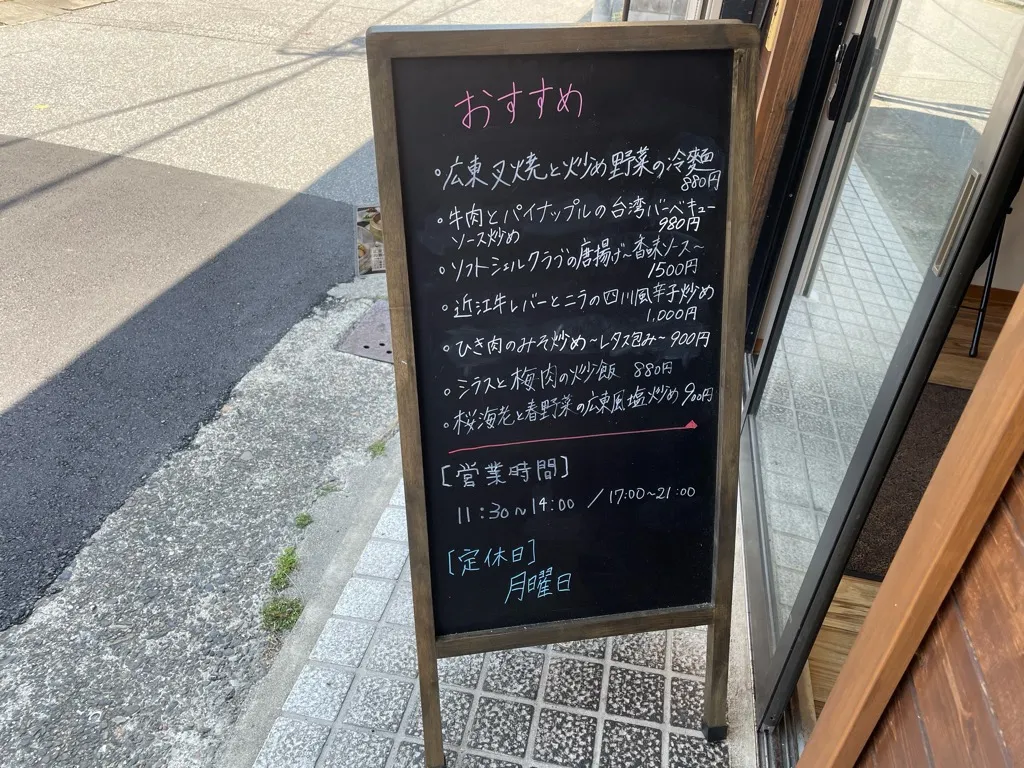 おすすめ
・広東叉焼と火炒め野菜の冷麺
880円
・牛肉とパイナップルの台湾バーベキュー
ソース炒め 980円
・ソフトシェルクラブの唐揚げ〜香味ソース〜
1500円
・近江牛レバーとニラの四川風辛子炒め
1,000円
・ひき肉のみそ炒め〜レタス包み〜900円
・シラスと梅肉の炒飯 880円
・桜海老と春野菜の広東風塩炒め 900円
[営業時間]
11:30〜14:00 / 17:00〜21:00
[定休日]
月曜日